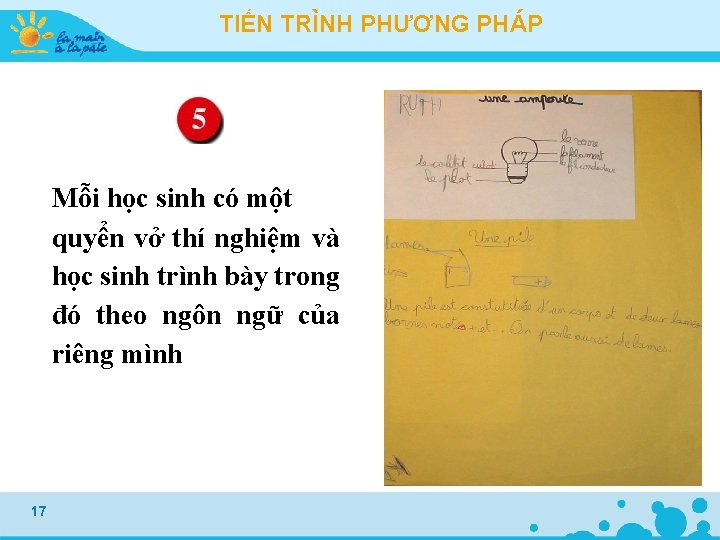 TIẾN TRÌNH PHƯƠNG PHÁP
la main
à la pâte
5
Mỗi học sinh có một
quyển vở thí nghiệm và
học sinh trình bày trong
đó theo ngôn ngữ của
riêng mình
RUTH
une ampoule
le verre
le filament
le fil conducteur
le culot
le plot
lames
Une pile
+ -
Une pile est constutituée d'un corps et de deux lames
bornes notées + et -. On parle aussi de lames.
17